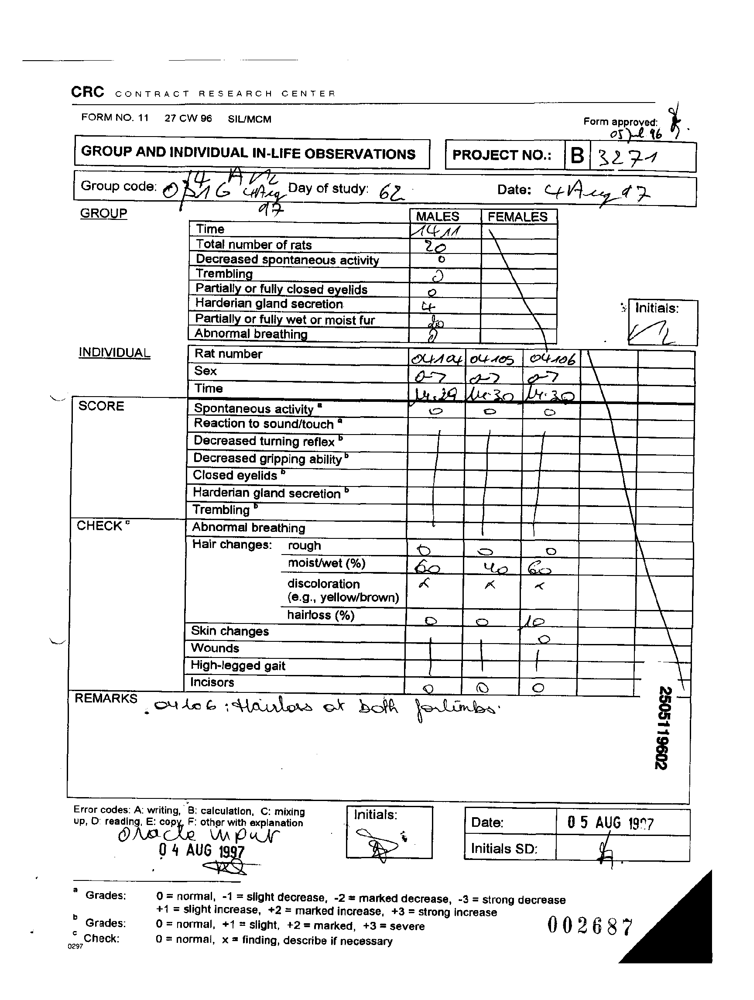 CRC CONTRACT RESEARCH CENTER
FORM NO. 11 27 CW 96 SIL/MCM
Form approved:
GROUP AND INDIVIDUAL IN-LIFE OBSERVATIONS
PROJECT NO.: B 3271
Group code: Day of study: 62 Date: 4 Aug 97
GROUP MALES FEMALES
Time 1411
Total number of rats 20
Decreased spontaneous activity 0
Trembling 0
Partially or fully closed eyelids 0
Harderian gland secretion 4
Partially or fully wet or moist fur
Abnormal breathing
Initials:
INDIVIDUAL Rat number 04104 04105 04106
Sex
Time 14.29 14.30 14.30
SCORE Spontaneous activity a 0 0 0
Reaction to sound/touch a
Decreased turning reflex b
Decreased gripping ability b
Closed eyelids b
Harderian gland secretion b
Trembling b
CHECK c Abnormal breathing
Hair changes: rough 0 0 0
moist/wet (%) 60 40 60
discoloration x x x
(e.g., yellow/brown)
hairloss (%) 0 0 10
Skin changes 0
Wounds
High-legged gait
Incisors 0 0 0
REMARKS . 04106 : Hairloss at both forlimbs.
2505119602
Error codes: A: writing, B: calculation, C: mixing
up, D: reading, E: copy, F: other with explanation
Oracle input
04 AUG 1997
Initials:
Date: 05 AUG 1997
Initials SD:
a Grades: 0 = normal, -1 = slight decrease, -2 = marked decrease, -3 = strong decrease
+1 = slight increase, +2 = marked increase, +3 = strong increase
b Grades: 0 = normal, +1 = slight, +2 = marked, +3 = severe
c Check: 0 = normal, x = finding, describe if necessary
0297
002687